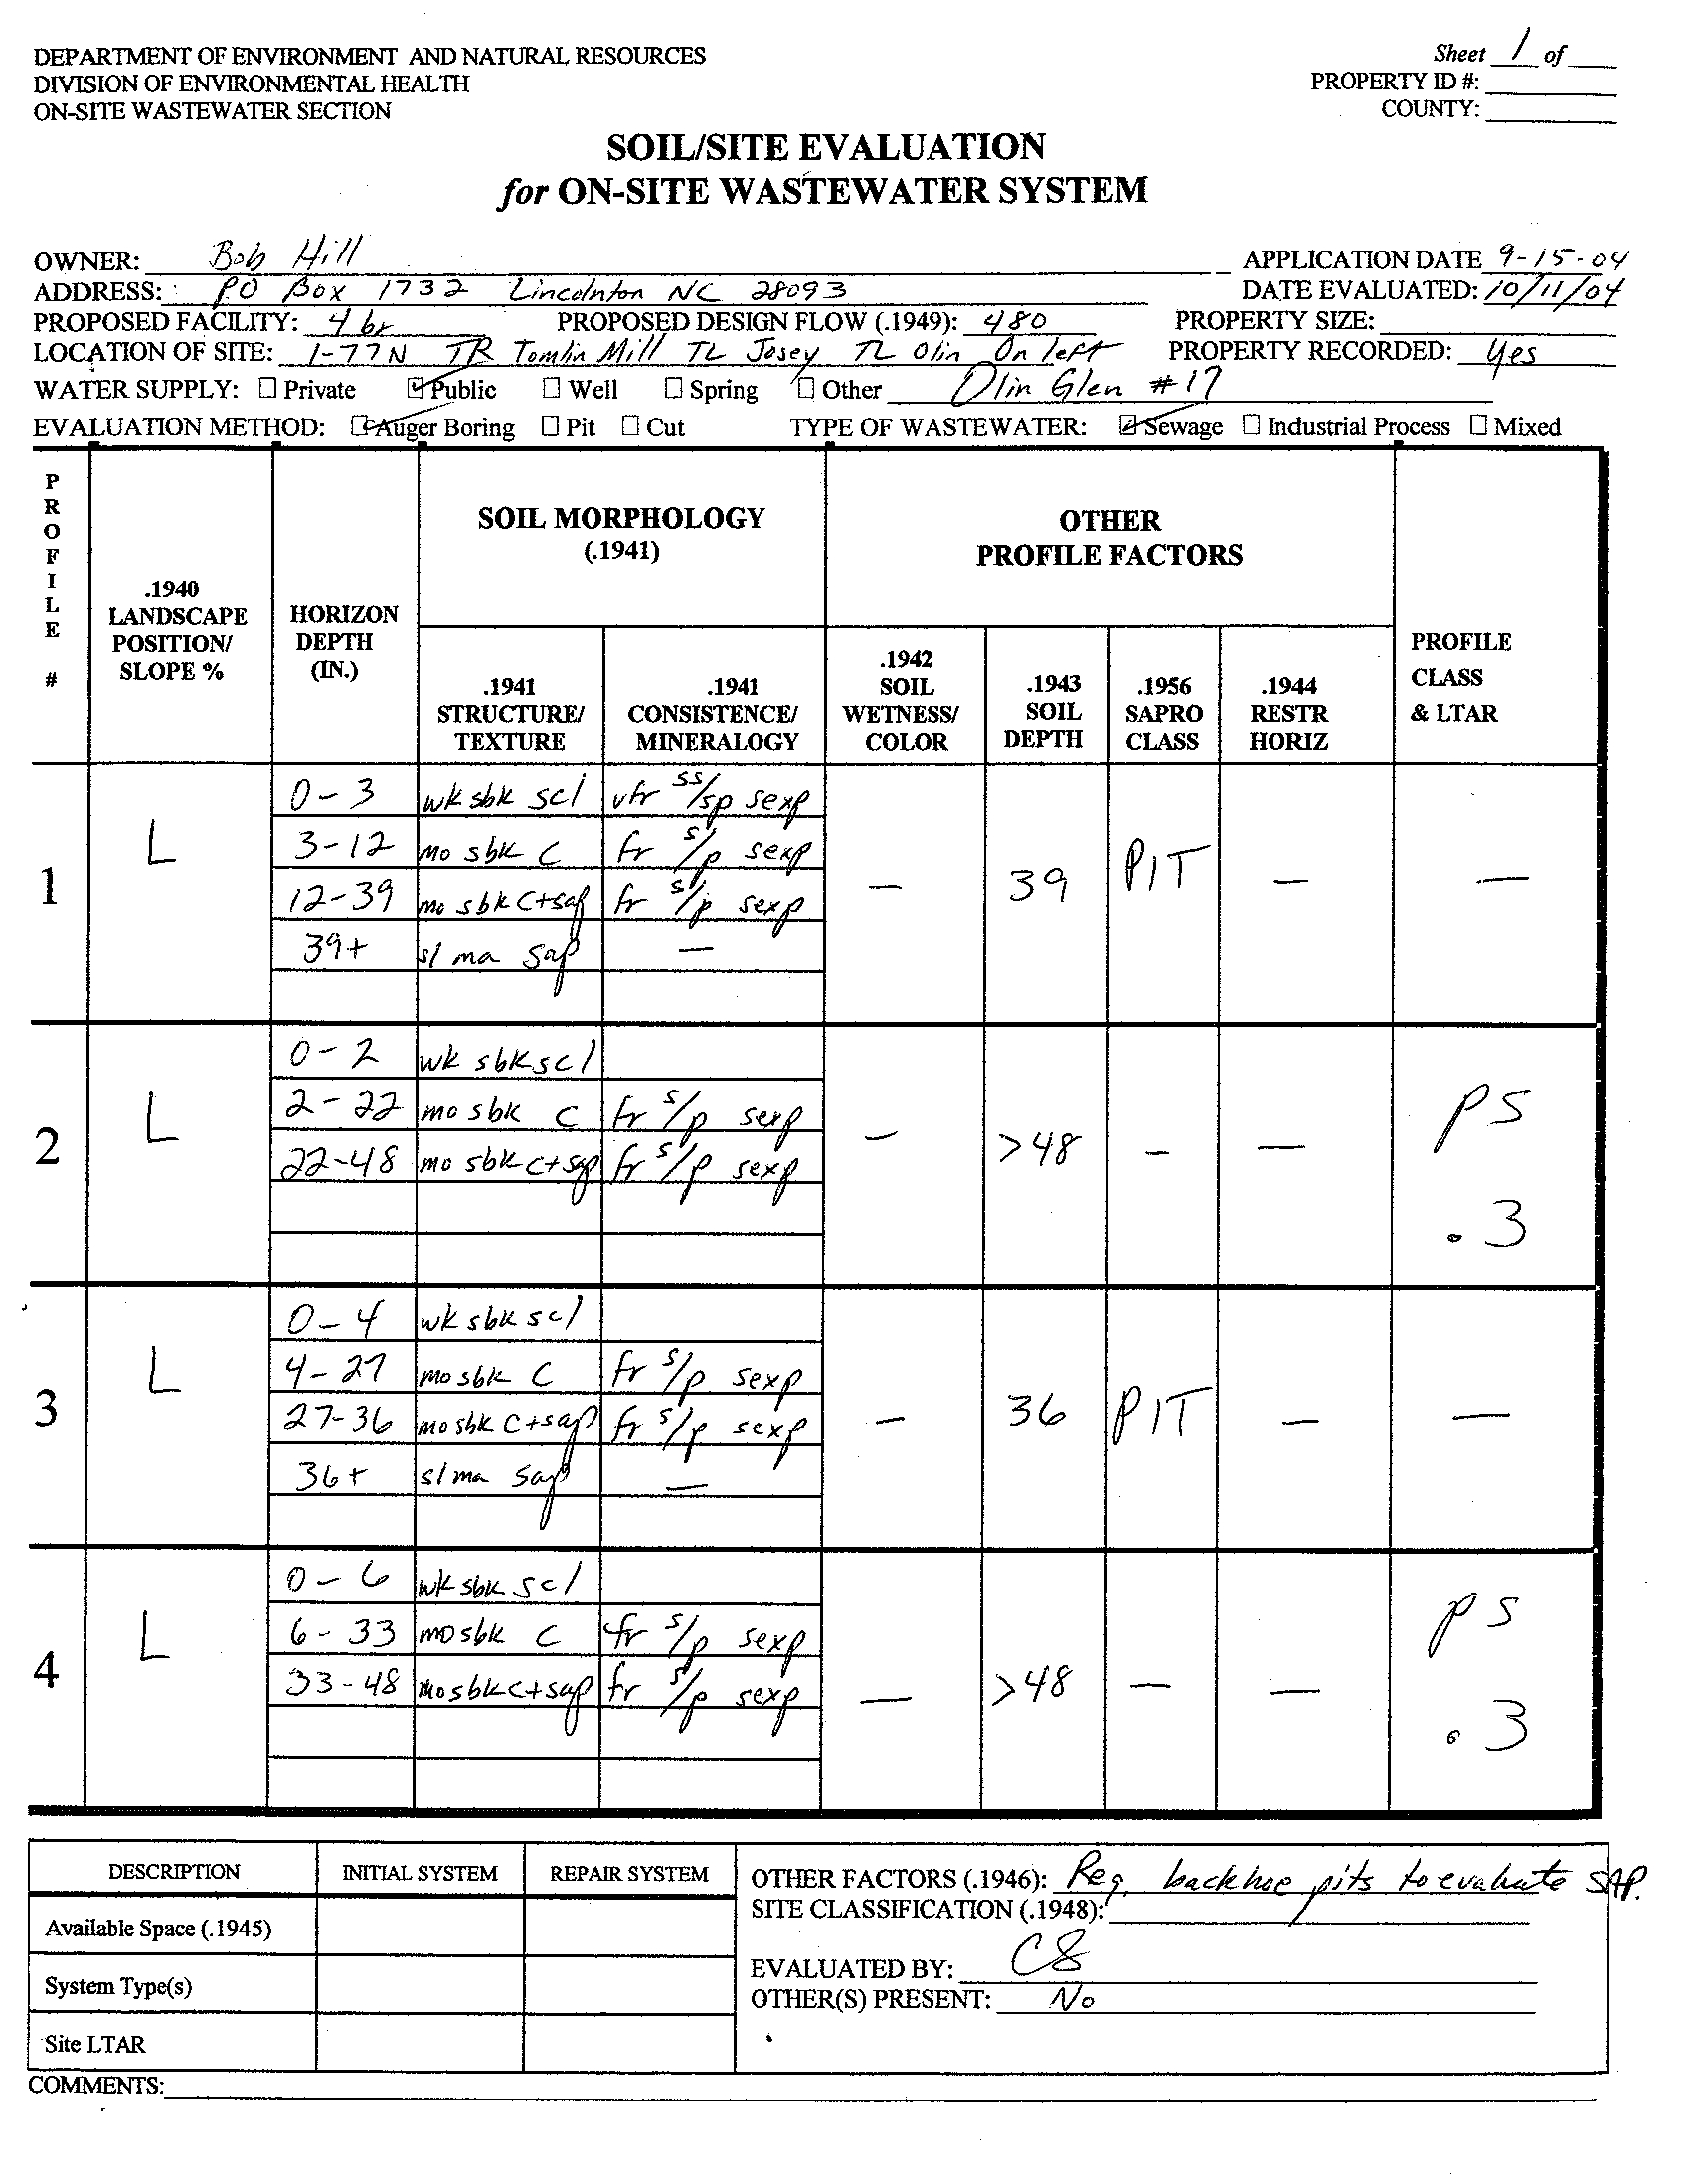 DEPARTMENT OF ENVIRONMENT AND NATURAL RESOURCES
DIVISION OF ENVIRONMENTAL HEALTH
ON-SITE WASTEWATER SECTION
Sheet 1 of
PROPERTY ID #:
COUNTY:
SOIL/SITE EVALUATION
for ON-SITE WASTEWATER SYSTEM
OWNER: Bob Hill APPLICATION DATE 9-15-04
ADDRESS: PO Box 1732 Lincolnton NC 28093 DATE EVALUATED: 10/11/04
PROPOSED FACILITY: 4 br PROPOSED DESIGN FLOW (.1949): 480 PROPERTY SIZE:
LOCATION OF SITE: I-77N TR Tomlin Mill TL Josey TL Olin On left PROPERTY RECORDED: yes
WATER SUPPLY: ☐ Private ☑ Public ☐ Well ☐ Spring ☐ Other Olin Glen #17
EVALUATION METHOD: ☑ Auger Boring ☐ Pit ☐ Cut TYPE OF WASTEWATER: ☑ Sewage ☐ Industrial Process ☐ Mixed
PROFILE #
.1940 LANDSCAPE POSITION/ SLOPE %
HORIZON DEPTH (IN.)
SOIL MORPHOLOGY (.1941)
.1941 STRUCTURE/ TEXTURE
.1941 CONSISTENCE/ MINERALOGY
OTHER PROFILE FACTORS
.1942 SOIL WETNESS/ COLOR
.1943 SOIL DEPTH
.1956 SAPRO CLASS
.1944 RESTR HORIZ
PROFILE CLASS & LTAR
1 L
0-3 wk sbk scl vfr ss/sp sexp
3-12 mo sbk C fr s/p sexp
12-39 mo sbk C+sap fr s/p sexp
39+ s/ ma sap —
— 39 PIT — —
2 L
0-2 wk sbk scl
2-22 mo sbk C fr s/p sexp
22-48 mo sbk C+sap fr s/p sexp
— >48 — — PS .3
3 L
0-4 wk sbk scl
4-27 mo sbk C fr s/p sexp
27-36 mo sbk C+sap fr s/p sexp
36+ s/ ma sap —
— 36 PIT — —
4 L
0-6 wk sbk scl
6-33 mo sbk C fr s/p sexp
33-48 mo sbk C+sap fr s/p sexp
— >48 — — PS .3
DESCRIPTION INITIAL SYSTEM REPAIR SYSTEM
Available Space (.1945)
System Type(s)
Site LTAR
OTHER FACTORS (.1946): Req. backhoe pits to evaluate SAP.
SITE CLASSIFICATION (.1948):
EVALUATED BY:
OTHER(S) PRESENT: No
COMMENTS: